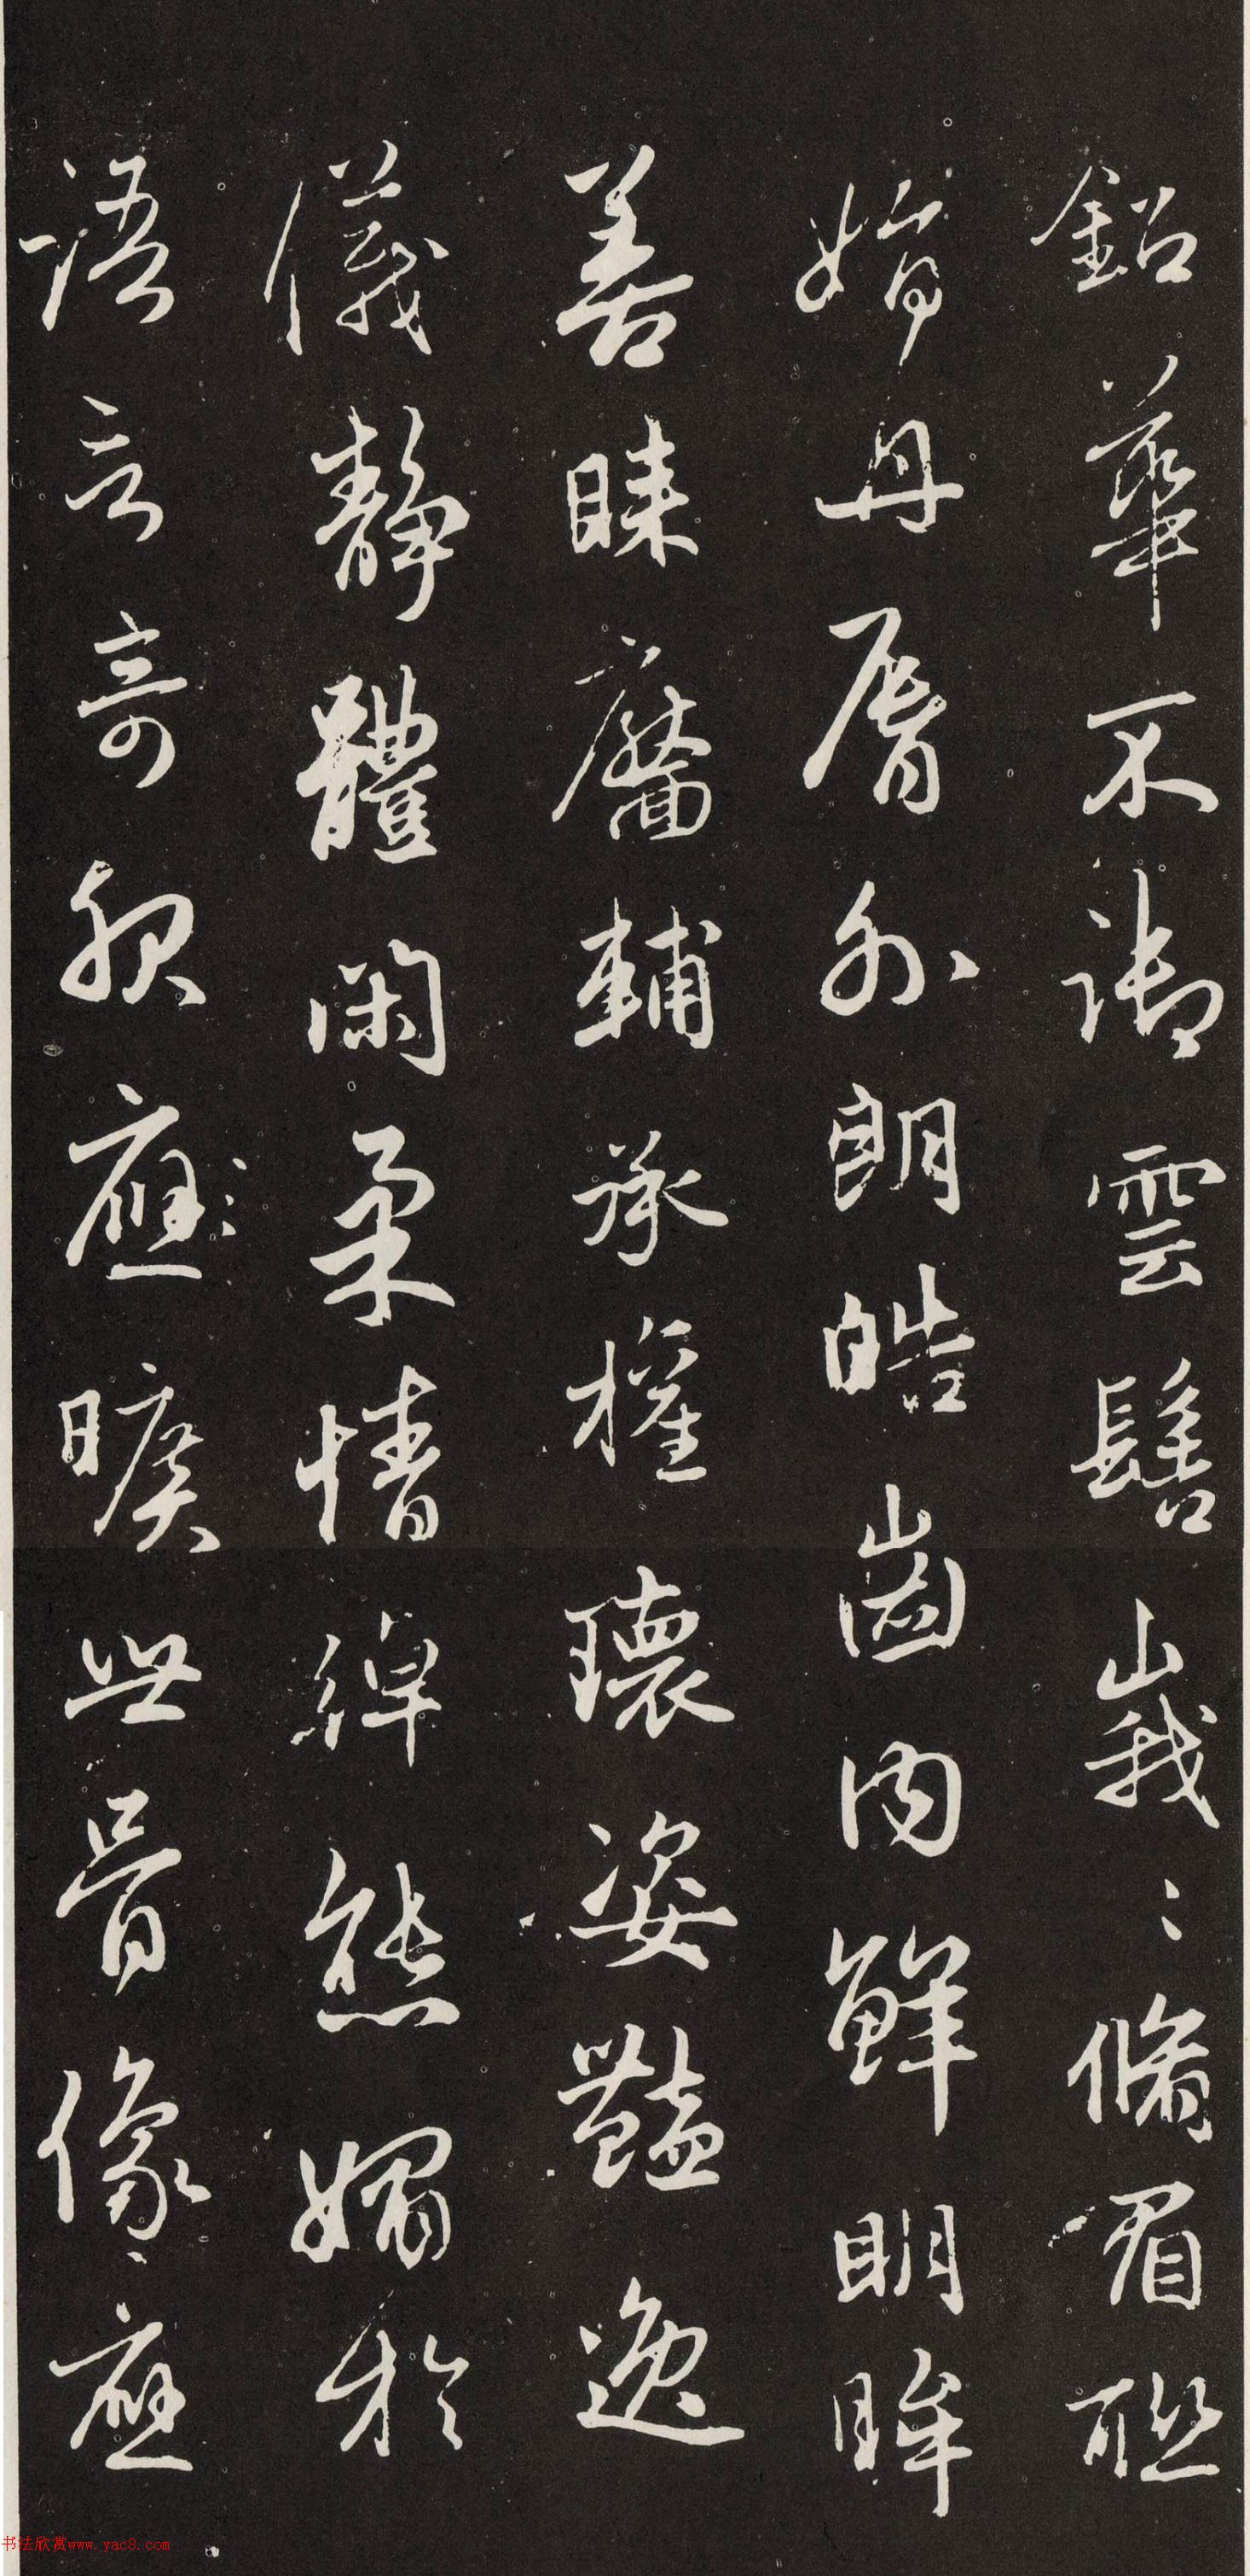 鉛華不御雲髻峩〻脩眉聯
娟丹脣外朗皓齒內鮮明眸
善睞靨輔承權瓌姿豔逸
儀靜體閑柔情綽態媚於
語言奇服應曠世骨像應
书法欣赏www.yac8.com